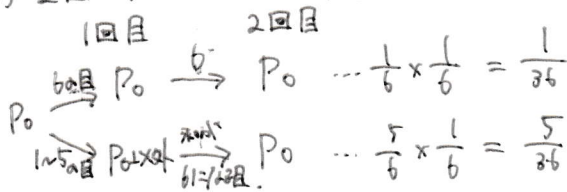 1回目 2回目
P₀ 6の目→ P₀ 6→ P₀ … 1/6 × 1/6 = 1/36
1~5の目→ P₀以外 → P₀ … 5/6 × 1/6 = 5/36